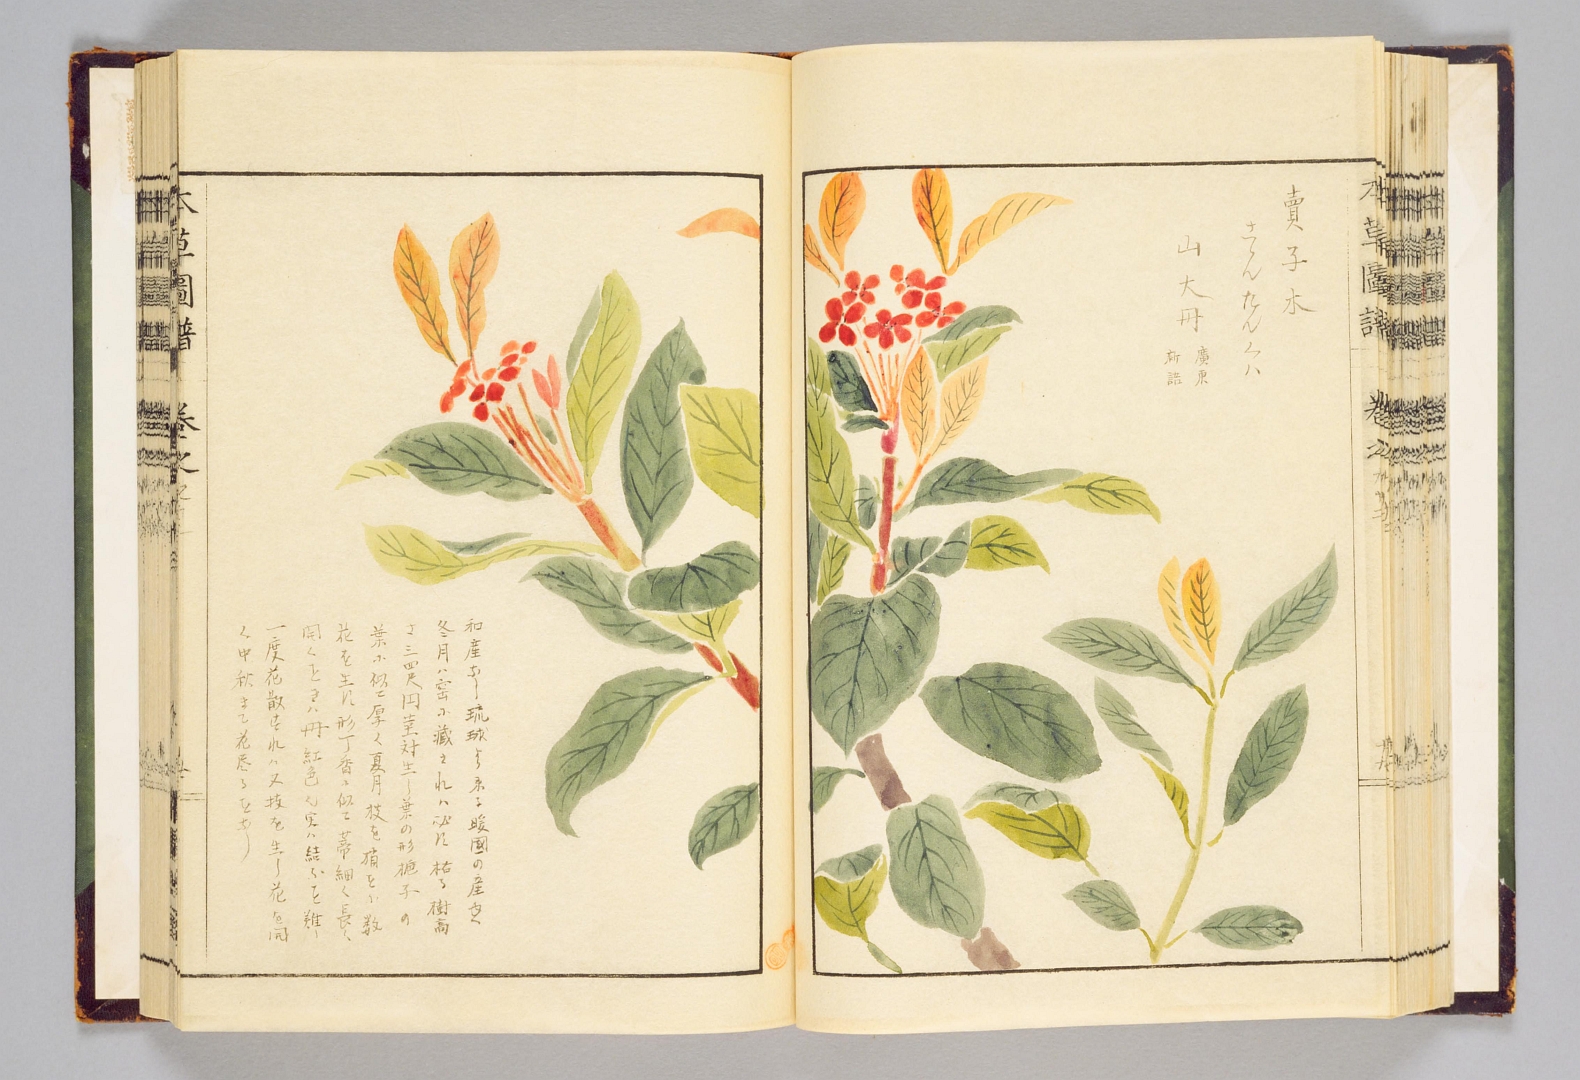 賣子木
さんたんくハ
山大丹 廣東新語
和産なし琉球より来る暖國の産也
冬月ハ窖に藏されハ必す枯る樹高
さ三四尺円莖対生し葉の形梔子の
葉に似て厚く夏月枝を積をに数
花を生す形丁香に似て蒂細く長く
開くときハ丹紅色也実ハ結ふを難し
一度花散去れハ又枝を生し花を開
く中秋まて花尽るをなし
本草圖譜 巻之
本草圖譜 巻之